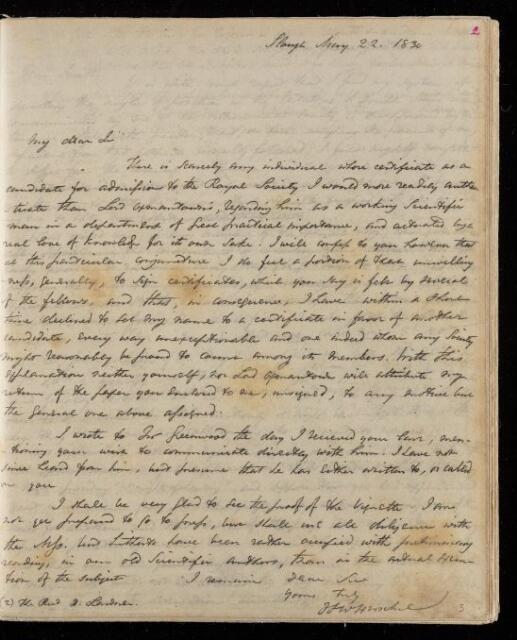 2
Slough Nov 22. 1830
My dear Sir
There is scarcely any individual whose certificate as a
candidate for admission to the Royal Society I would more readily authen
-ticate than Lord Oxmantown's, regarding him as a working Scientific
man in a department of great practical importance, and actuated by a
real love of knowledge for its own sake. I will confess to you however that
at this particular conjuncture I do feel a portion of that unwilling
ness, generally, to sign certificates, which you say is felt by several
of the fellows, and that, in consequence, I have within a short
time declined to set my name to a certificate in favor of another
candidate, every way unexceptionable and one indeed whom any Society
might reasonably be proud to count among its members. With this
explanation neither yourself, nor Lord Oxmantown will attribute my
return of the paper you enclosed to me, unsigned, to any motive but
the general one above assigned.
I wrote to Mr Greenwood the day I received your last, men-
-tioning your wish to communicate directly with him. I have not
since heard from him, but presume that he has either written to, or called
on you
I shall be very glad to see the proof of the Vignette. I am
not yet prepared to go to press, but shall use all diligence with
the MSS. but hitherto have been rather occupied with preliminary
reading, in our old Scientific Authors, than in the actual
of the subject I remain Dear Sir
Yours truly
JFW Herschel
(2) The Revd D. Lardner.
3